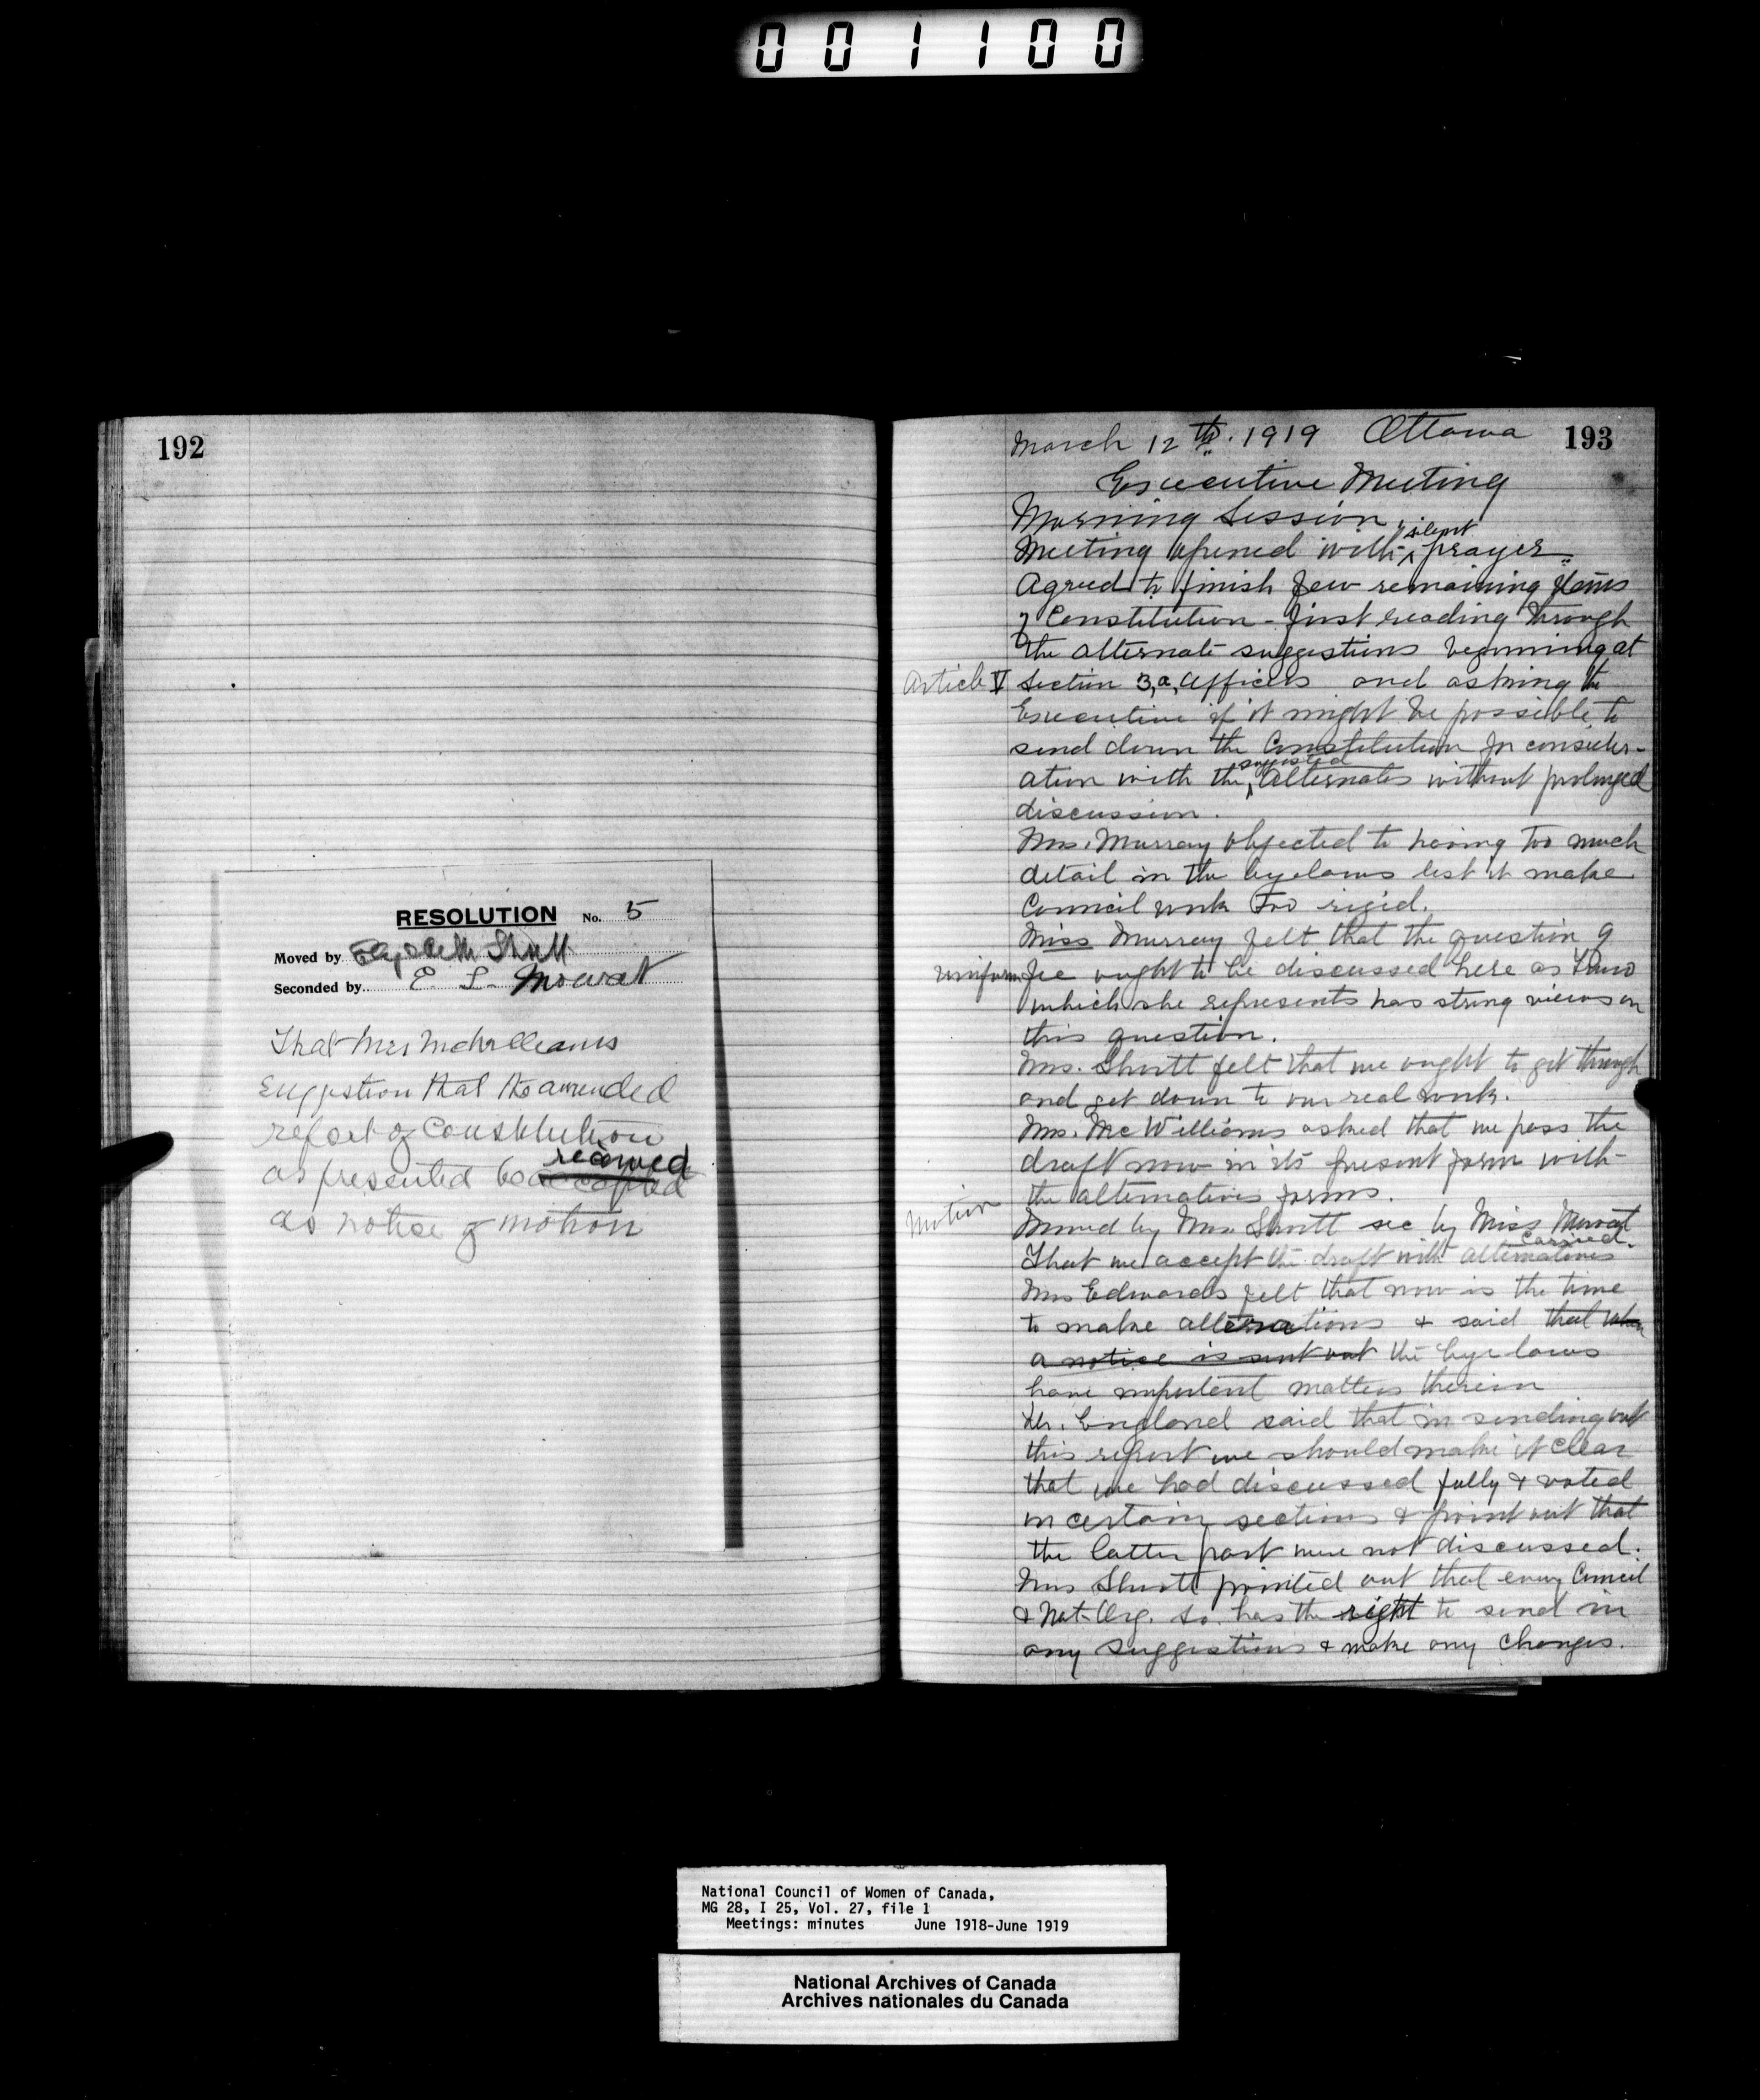 001100
192
RESOLUTION No. 5
Moved by Elizabeth Shortt
Seconded by E. L. Mowat
That Mrs McWilliams
suggestion that the amended
report of Constitution
received
as presented be accepted
as notice of motion
March 12th. 1919 Ottawa 193
Executive Meeting
Morning Session.
silent
Meeting opened with prayer
Agreed to finish few remaining items
of Constitution - first reading through
the alternate suggestions beginning at
Article V Section 3, a, Officers and asking the
Executive if it might be possible to
send down the Constitution for consider-
suggested
ation with the alternates without prolonged
discussion.
Mrs. Murray objected to having too much
detail in the byelaws lest it make
Council work too rigid.
Miss Murray felt that the question of
uniform fee ought to be discussed here as
which she represents has strong views on
this question.
Mrs. Shortt felt that we ought to get through
and get down to our real work.
Mrs. McWilliams asked that we pass the
draft now in its present form with
the alternative forms.
Motion Moved by Mrs Shortt sec by Miss Mowat
Carried.
That we accept the draft with alternatives
Mrs Edwards felt that now is the time
to make alterations & said that when
a notice is sent out the bye laws
have important matters therein
Dr. England said that in sending out
this report we should make it clear
that we had discussed fully & voted
on certain sections & point out that
the latter part were not discussed.
Mrs Shortt pointed out that every Council
& Nat. Org. so. has the right to send in
any suggestions & make any changes.
National Council of Women of Canada,
MG 28, I 25, Vol. 27, file 1
Meetings: minutes June 1918-June 1919
National Archives of Canada
Archives nationales du Canada